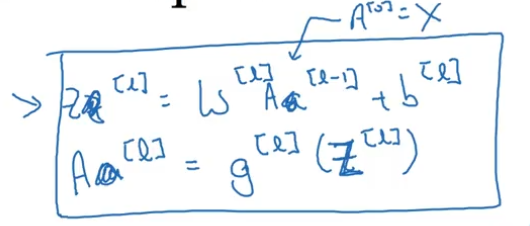 A^[0] = X
Z^[l] = W^[l] A^[l-1] + b^[l]
A^[l] = g^[l] (Z^[l])